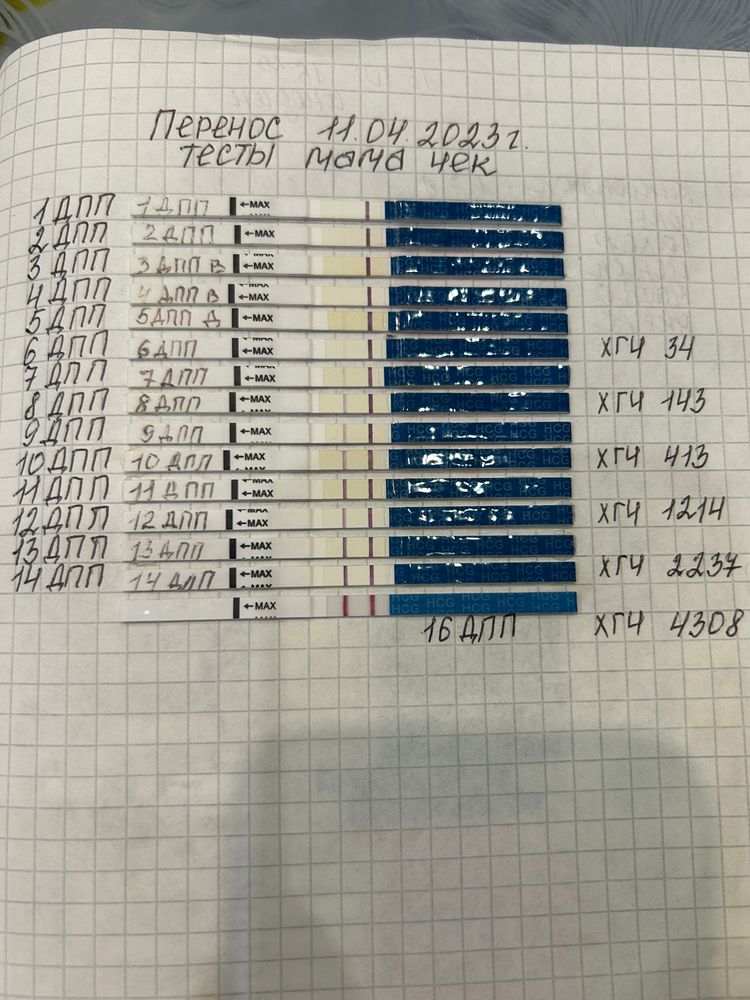 Перенос 11.04.2023г.
тесты мама чек
1ДПП 1ДПП ←MAX HCG
2ДПП 2ДПП ←MAX
3ДПП 3ДПП в ←MAX
4ДПП 4ДПП в ←MAX
5ДПП 5ДПП Д ←MAX
6ДПП 6ДПП ←MAX HCG ХГЧ 34
7ДПП 7ДПП ←MAX HCG
8ДПП 8ДПП ←MAX HCG ХГЧ 143
9ДПП 9ДПП ←MAX HCG
10ДПП 10ДПП ←MAX HCG ХГЧ 413
11ДПП 11ДПП ←MAX HCG
12ДПП 12ДПП ←MAX HCG ХГЧ 1214
13ДПП 13ДПП ←MAX HCG
14ДПП 14ДПП ←MAX HCG ХГЧ 2237
←MAX HCG HCG HCG HCG
16ДПП ХГЧ 4308